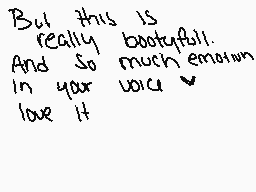 But this is
really bootyfull.
And so much emotion
in your voice ♥
love it